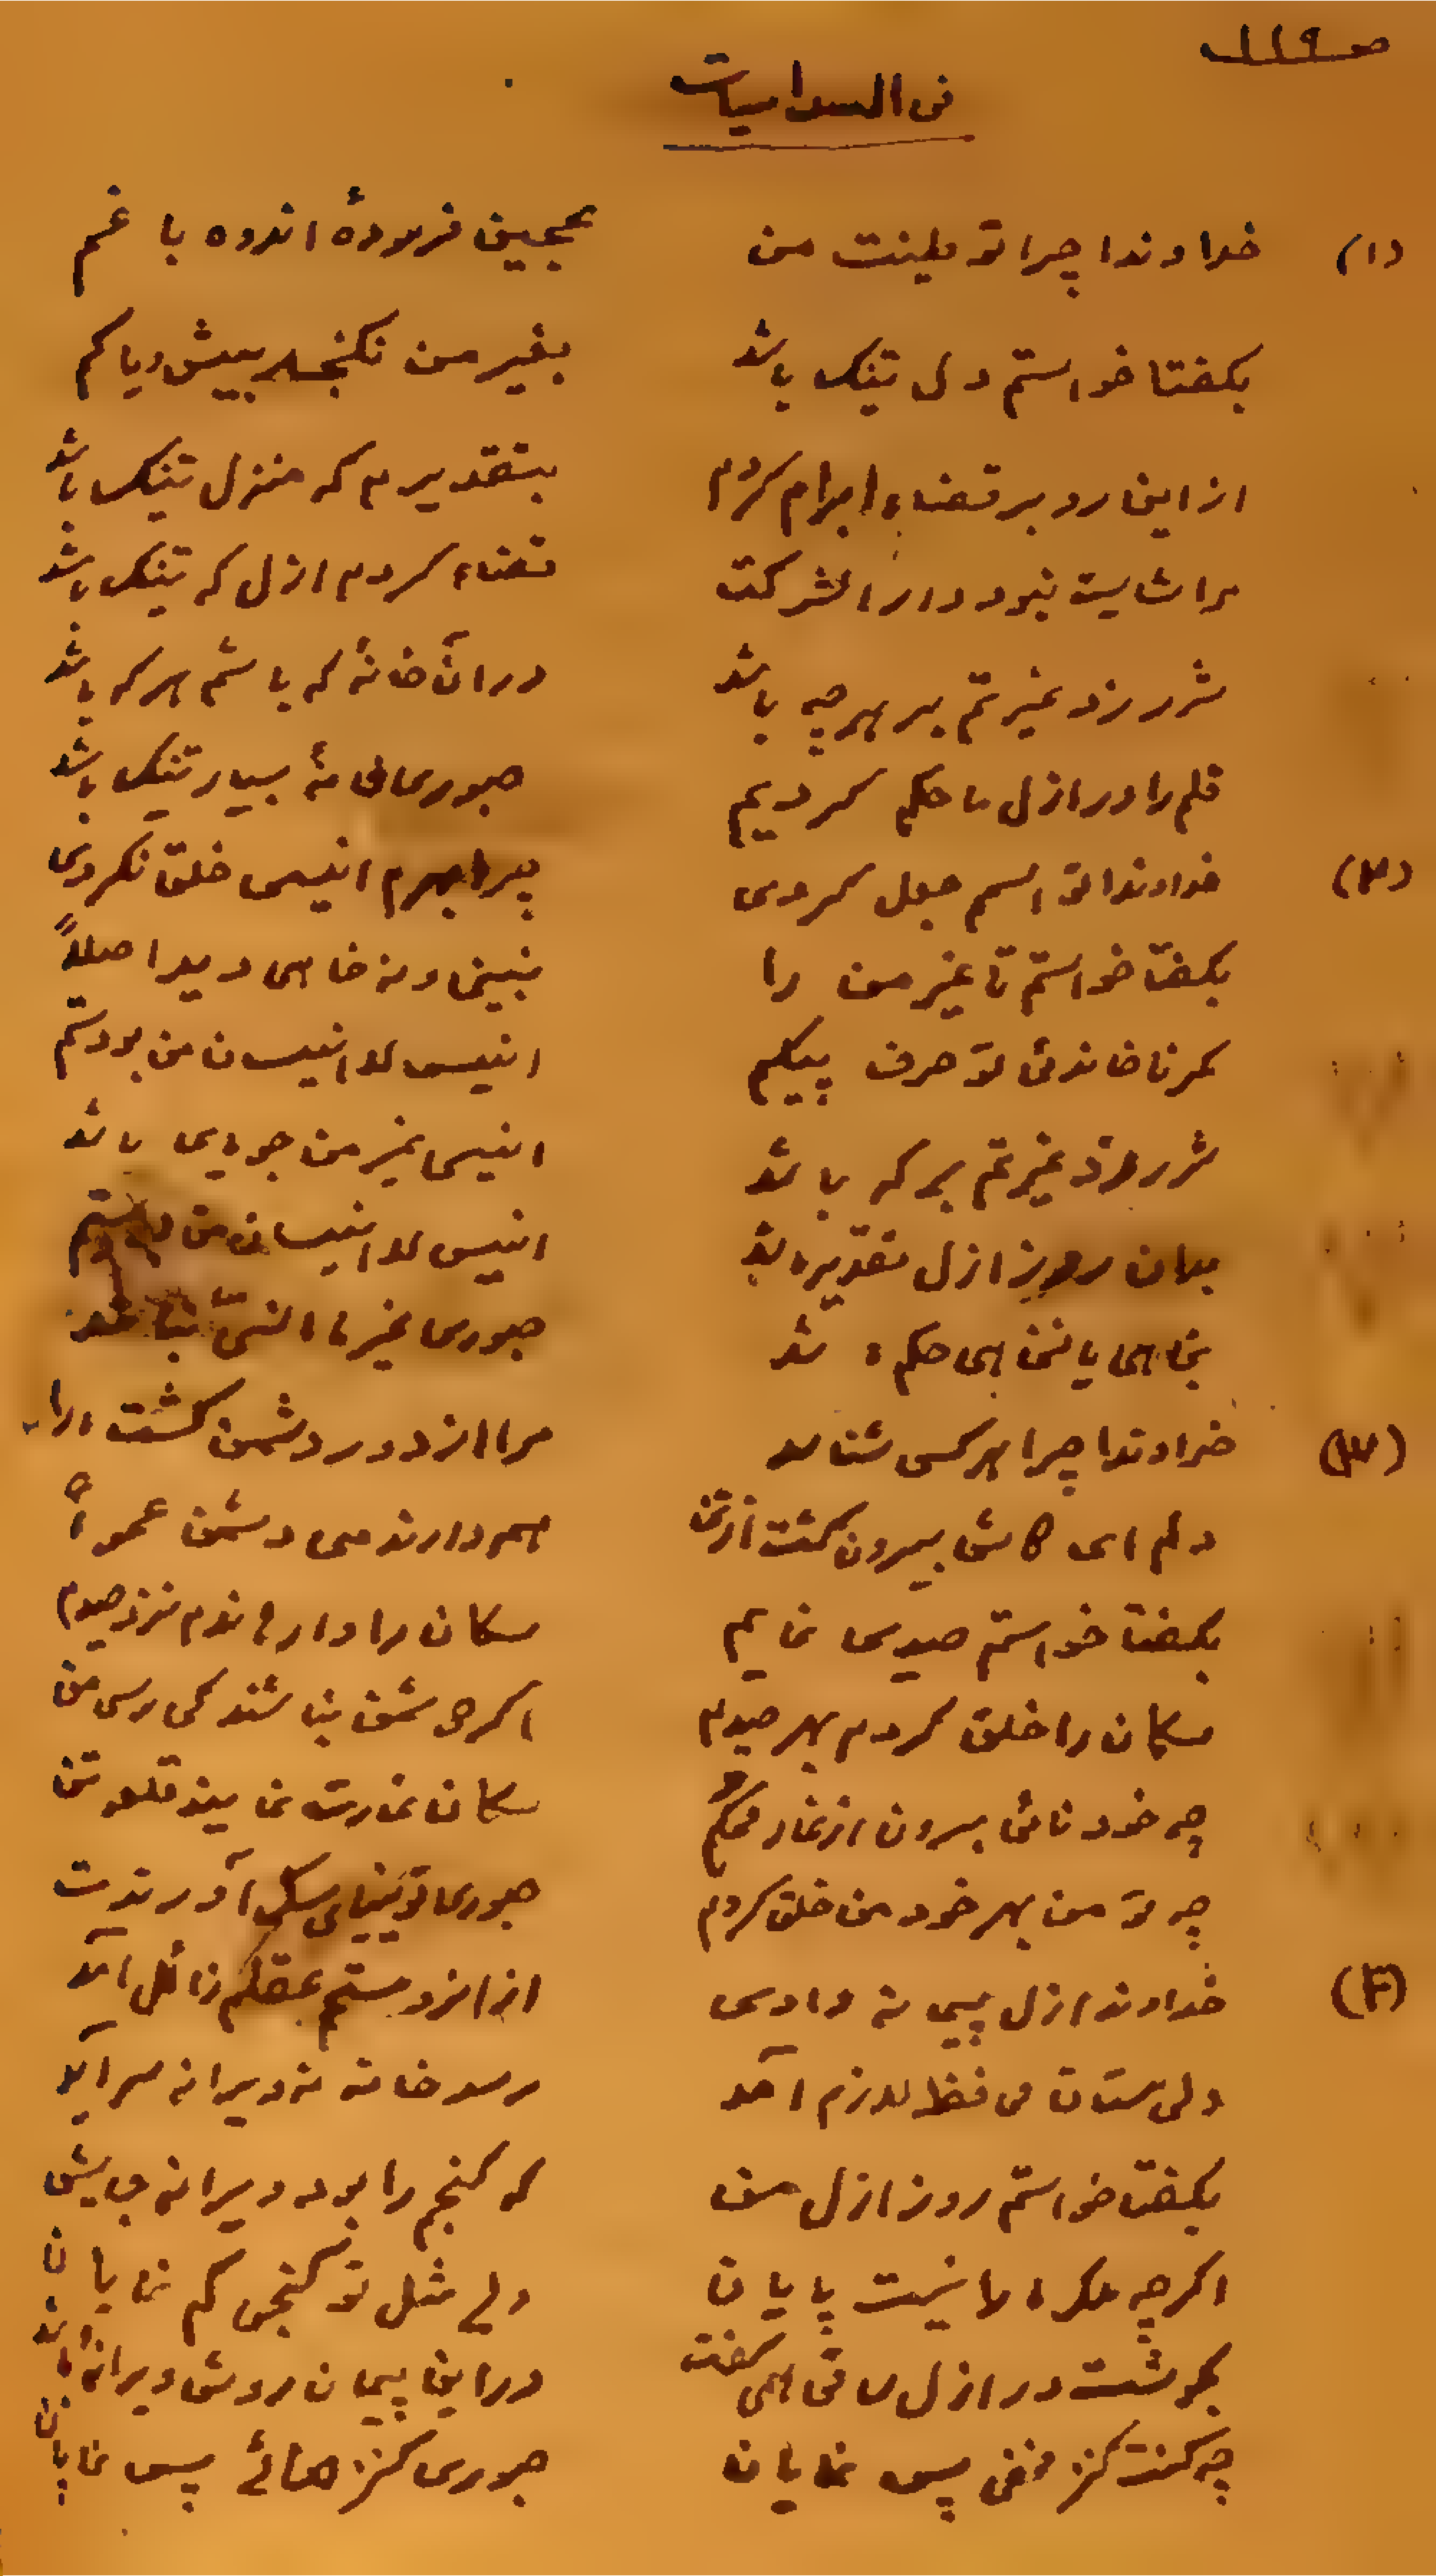 ص ١١٩
فی السداسیات
(١) خداوندا چرا تو طینت من عجین فرمودهٔ اندوه با غم
بگفتا خواستم دل تنگ باشد بغیر من نگنجد بیش و یا کم
از این رو بر قضاء ابرام کردم بتقدیرم که منزل تنگ باشد
مرا شایست نبود دار الشرکت قضاء کردم ازل که تنگ باشد
شرر زد غیرتم بر هر چه باشد در آن خانهٔ که باشم هر که باشد
قلم را در ازل ما حکم کردیم صبوری خانهٔ بسیار تنگ باشد
(٢) خداوندا تو اسم جعل کردی چرا بهرم انیسی خلق نکردی
بگفتا خواستم تا غیر من را نبینی و نه خواهی دید اصلاً
انیس لا انیسان من بودستم
شرر زد غیرتم بر که باشد انیسی غیر من جویی باشد
بدان روز ازل تقدیر شد انیس لا انیسان من
بخواهی یا نخواهی حکم شد صبوری غیر ما انسی نباشد
(٣) خداوندا چرا هر کسی شناسد مرا از دور دشمن گشت
دلم ای کاش بیرون گشت از تن همه دارند می دشمن عمواً
بگفتا خواستم صیدی نمایم سگان را وادارماندم نزد صیدم
سگان را خلق کردم بهر صیدم اگر دشمن نباشند کی رسی من
چه خود نائی برون از غار محکم سگان غارت نمایند قلعه تن
چه تو من بهر خود من خلق کردم صبوری تو نیایی سگ آورندت
(۴) خداوندا ازل پیمانه دادی از آنرو مستم عقلم زائل آمد
ولی مستان می فقط لازم آمد رسد خانه نه ویرانه سرآید
بگفتا خواستم روز ازل من که گنجم را بود ویرانه جایش
اگر چه ملک ما نیست پایان ولے مثل تو گنجی کم نمایان
بگوشت در ازل ساقی همی گفت در این پیمان روش ویرانهٔ باید
چه کنت کنز مخفی پس نمایان صبوری کنز هائے پس نمایان